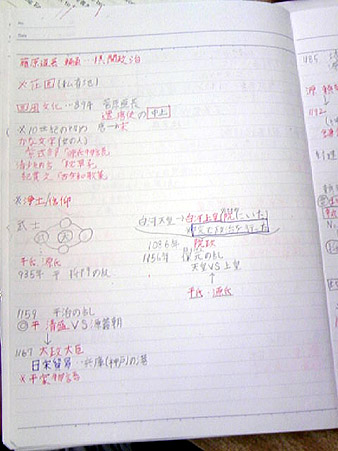 藤原道長 頼通…摂関政治
※荘園(私有地)
国風文化…894年 菅原道真
遣唐使の中止
※10世紀の初め 唐→宋
かな文字(女の人)
紫式部「源氏物語」
清少納言「枕草子」
紀貫之「古今和歌集」
※浄土信仰
武士
平氏 源氏
935年 平
白河天皇→白河上皇(院にいた)
院で政治を行った
1086年 院政
1156年 保元の乱
天皇VS上皇
↑
平氏・源氏
1159 平治の乱
◎平清盛VS源義朝
↓
1167 太政大臣
日宋貿易…兵庫(神戸)の港
※平家物語
1185
源
1192